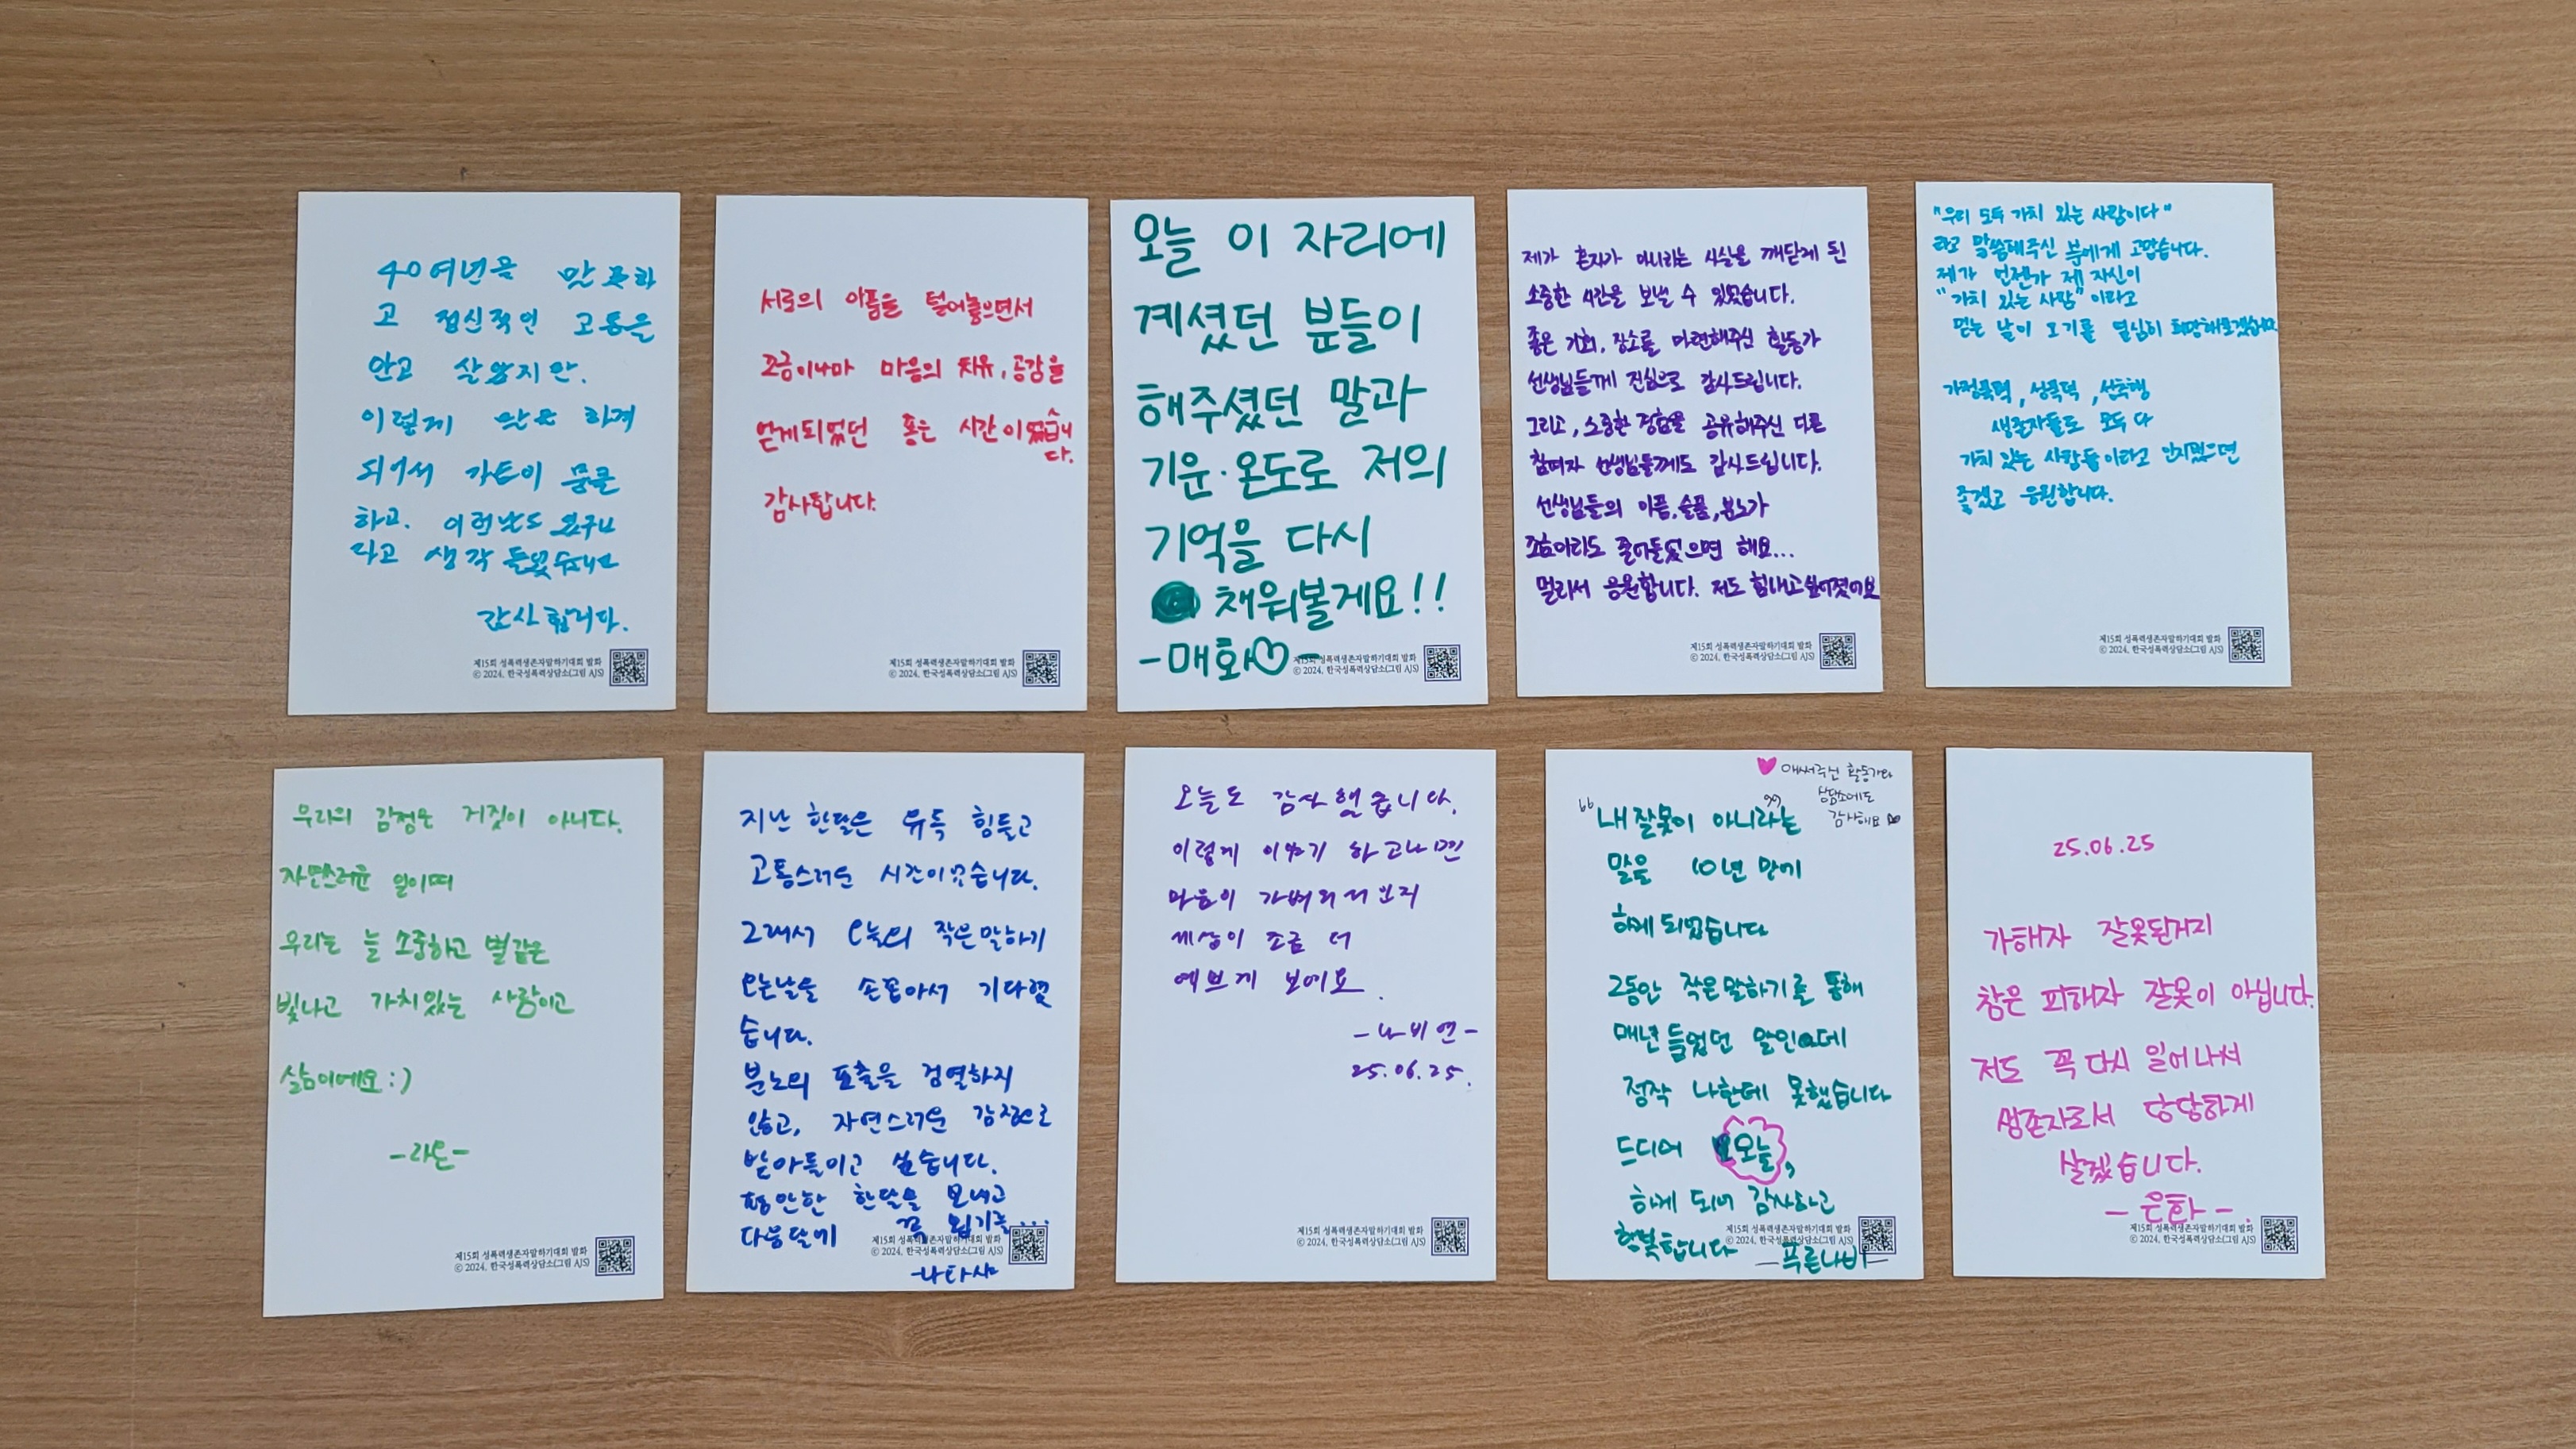 40여년을 말 못하
고 정신적인 고통을
안고 살았지만.
이렇게 말을 하게
되어서 가슴이 뭉클
하고. 이런날도 오구나
라고 생각 들었습니다
감사합니다.
제15회 성폭력생존자말하기대회 발화
© 2024. 한국성폭력상담소(그림 AJS)
서로의 아픔을 털어놓으면서
조금이나마 마음의 치유, 공감을
얻게되었던 좋은 시간이었습니
다.
감사합니다.
제15회 성폭력생존자말하기대회 발화
© 2024. 한국성폭력상담소(그림 AJS)
오늘 이 자리에
계셨던 분들이
해주셨던 말과
기운·온도로 저의
기억을 다시
채워볼게요!!
-매화♡-
제15회 성폭력생존자말하기대회 발화
© 2024. 한국성폭력상담소(그림 AJS)
제가 혼자가 아니라는 사실을 깨닫게 된
소중한 시간을 보낼 수 있었습니다.
좋은 기회, 장소를 마련해주신 활동가
선생님들께 진심으로 감사드립니다.
그리고, 소중한 경험을 공유해주신 다른
참여자 선생님들께도 감사드립니다.
선생님들의 아픔, 슬픔, 분노가
조금이라도 줄어들었으면 해요...
멀리서 응원합니다. 저도 힘내고싶어졌어요
제15회 성폭력생존자말하기대회 발화
© 2024. 한국성폭력상담소(그림 AJS)
"우리 모두 가치 있는 사람이다"
라고 말씀해주신 분에게 고맙습니다.
제가 언젠가 제 자신이
"가치 있는 사람"이라고
믿는 날이 오기를 열심히 희망해보겠습니다
가정폭력, 성폭력, 성추행
생존자들도 모두 다
가치 있는 사람들이라고 인지했으면
좋겠고 응원합니다.
제15회 성폭력생존자말하기대회 발화
© 2024. 한국성폭력상담소(그림 AJS)
우리의 감정은 거짓이 아니다.
자연스러운 일이며
우리는 늘 소중하고 별같은
빛나고 가치있는 사람이고
삶이에요 :)
-라온-
제15회 성폭력생존자말하기대회 발화
© 2024. 한국성폭력상담소(그림 AJS)
지난 한달은 유독 힘들고
고통스러운 시간이었습니다.
그래서 오늘의 작은말하기
오는날을 손꼽아서 기다렸
습니다.
분노의 표출을 검열하지
않고, 자연스러운 감정으로
받아들이고 싶습니다.
평안한 한달을 보내고
다음달에 꼭 뵙기를...
제15회 성폭력생존자말하기대회 발화
© 2024. 한국성폭력상담소(그림 AJS)
오늘도 감사했습니다.
이렇게 이야기 하고나면
마음이 가벼워져보지
세상이 조금 더
예쁘게 보여요.
-나비연-
25.06.25.
제15회 성폭력생존자말하기대회 발화
© 2024. 한국성폭력상담소(그림 AJS)
♥ 애써주신 활동가와
상담소에도
감사해요
"내 잘못이 아니라"는
말을 10년 만에
하게 되었습니다
그동안 작은말하기를 통해
매년 들었던 말인데
정작 나한테 못했습니다
드디어 오늘,
하게 되어 감사하고
행복합니다
-푸른나비-
제15회 성폭력생존자말하기대회 발화
© 2024. 한국성폭력상담소(그림 AJS)
25.06.25
가해자 잘못된거지
참은 피해자 잘못이 아닙니다.
저도 꼭 다시 일어나서
생존자로서 당당하게
살겠습니다.
-은화-.
제15회 성폭력생존자말하기대회 발화
© 2024. 한국성폭력상담소(그림 AJS)